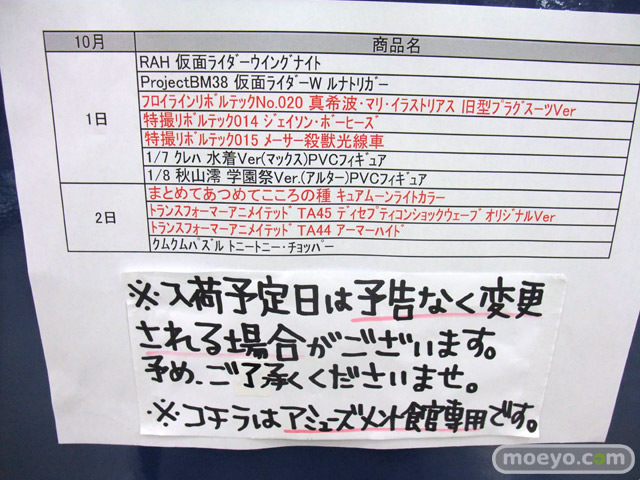 10月 商品名
RAH 仮面ライダーウイングナイト
ProjectBM38 仮面ライダーW ルナトリガー
フロイラインリボルテックNo.020 真希波・マリ・イラストリアス 旧型プラグスーツVer
1日 特撮リボルテック014 ジェイソン・ボーヒーズ
特撮リボルテック015 メーサー殺獣光線車
1/7 クレハ 水着Ver(マックス)PVCフィギュア
1/8 秋山澪 学園祭Ver.(アルター)PVCフィギュア
まとめてあつめてこころの種 キュアムーンライトカラー
2日 トランスフォーマーアニメイテッド TA45 ディセプティコンショックウェーブ オリジナルVer
トランスフォーマーアニメイテッド TA44 アーマーハイド
クムクムパズル トニートニー・チョッパー
※入荷予定日は予告なく変更
される場合がございます。
予め、ご了承くださいませ。
※コチラはアミューズメント館専用です。
moeyo.com